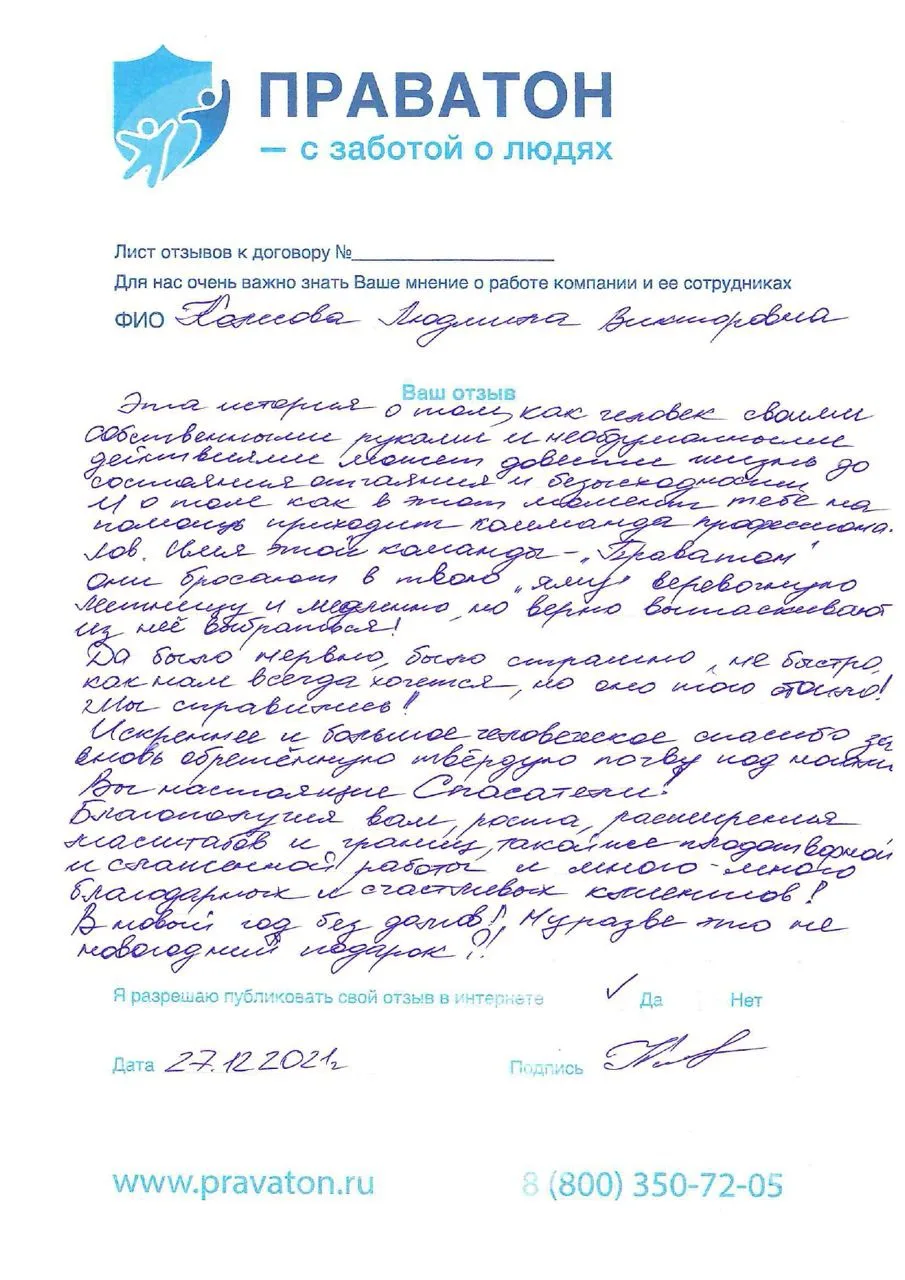 ПРАВАТОН
– с заботой о людях
Лист отзывов к договору №
Для нас очень важно знать Ваше мнение о работе компании и ее сотрудниках
ФИО Людмила Викторовна
Ваш отзыв
Эта история о том, как человек своими
собственными руками и необдуманными
действиями может довести жизнь до
состояния отчаяния и безысходности
И о том как в этот момент тебе на
помощь приходит команда профессиона-
лов. Имя этой команды – „Праватон"
они бросают в твою „яму" веревочную
лестницу и медленно, но верно вытаскивают
из неё выбраться!
Да было нервно, было страшно, не быстро,
как нам всегда хочется, но оно того стоило!
Мы справились!
Искреннее и большое человеческое спасибо за
вновь обретённую твёрдую почву под ногами
Вы настоящие Спасатели!
Благополучия вам, роста, расширения
масштабов и границ, такой же плодотворной
и слаженной работы и много-много
благодарных и счастливых клиентов!
В новый год без долгов! Ну разве это не
новогодний подарок?!
Я разрешаю публиковать свой отзыв в интернете ✓ Да Нет
Дата 27.12.2021г Подпись
www.pravaton.ru 8 (800) 350-72-05